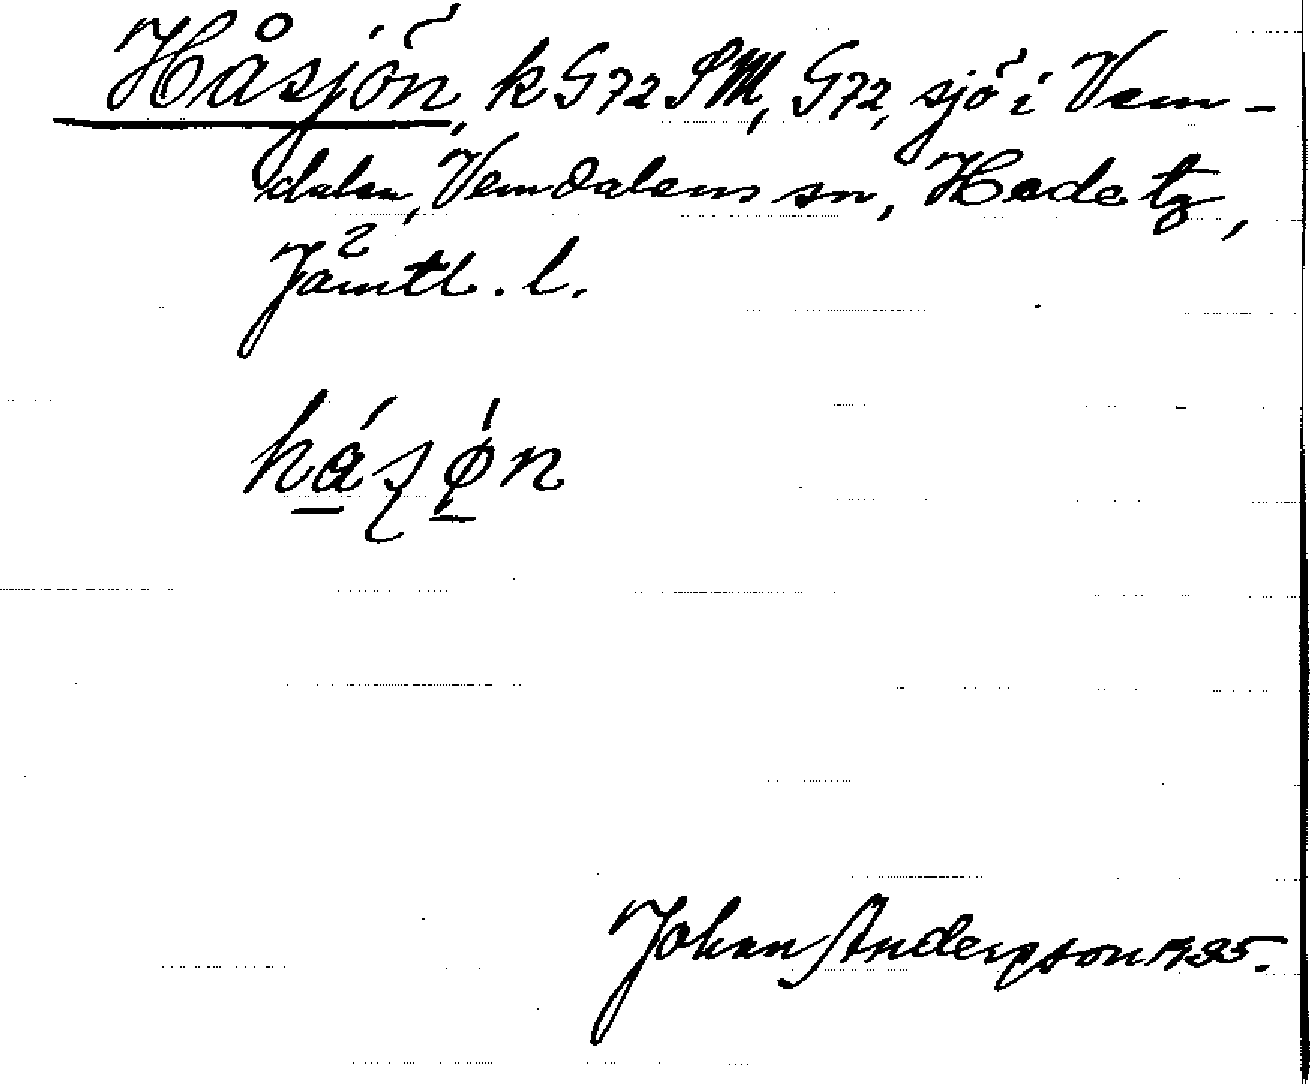 Håsjön, k G72 SM, G72, sjö i Vem-
dalen, Vemdalens sn, Hede tg,
Jämtl. l.
håsøn
Johan Anderson 1935.